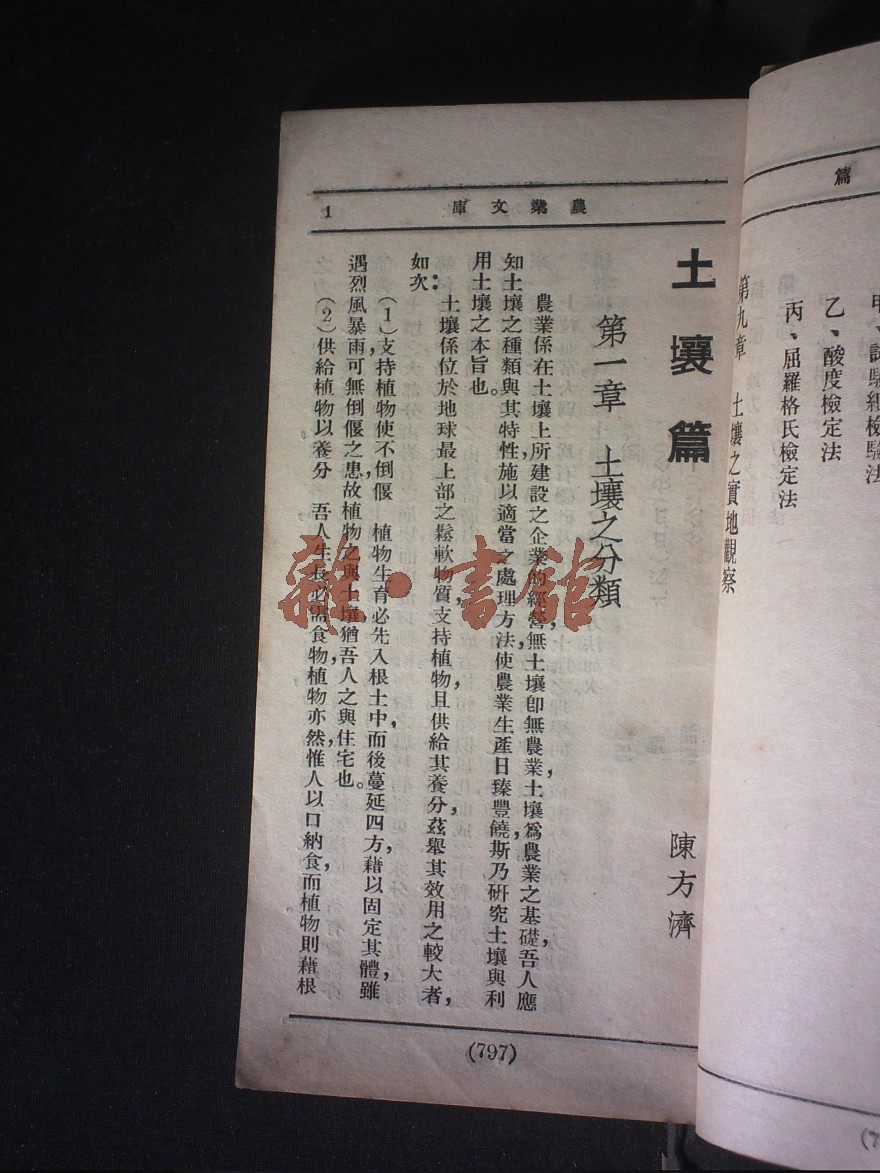 篇
乙、酸度檢定法
丙、屈羅格氏檢定法
第九章 土壤之實地觀察
農業文庫
1
土壤篇
陳方濟
第一章 土壤之分類
農業係在土壤上所建設之企業的經營,無土壤卽無農業,土壤爲農業之基礎,吾人應
知土壤之種類與其特性,施以適當之處理方法,使農業生產日臻豐饒,斯乃研究土壤與利
用土壤之本旨也。
土壤係位於地球最上部之鬆軟物質,支持植物,且供給其養分,茲舉其效用之較大者,
如次:
(1)支持植物,使不倒偃 植物生育,必先入根土中,而後蔓延四方,藉以固定其體,雖
遇烈風暴雨,可無倒偃之患,故植物之與土壤,猶吾人之與住宅也。
(2)供給植物以養分 吾人生長,必需食物,植物亦然,惟人以口納食,而植物則藉根
(797)
雜·書館